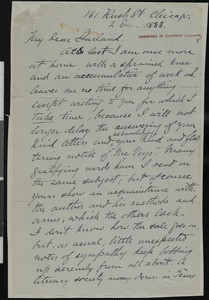 161 Rush St. Chicago.
2 Dec. 1888.
My Dear Garland.
At last I am once more
at home with a sprained knee
and an accumulation of work wh
leaves me no time for anything
except writing to you for which I
take time, because I will not
longer delay the answering of your
kind letters and your kind and flat-
tering notice of
gratifying words have I read on
the same subject, but of course
yours show an acquaintance with
the author and his methods and
aims, which the others lack.
I don't know how the sale goes on
but, as usual, little unexpected
notes of sympathy keep bobbing
up serenely from all about. A
literary society away down in Texas